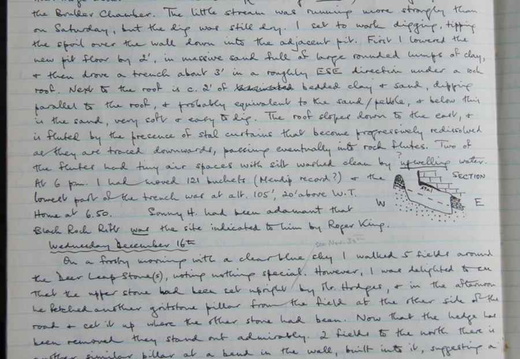 the Boulder Chamber. The little stream was running more strongly than
on Saturday, but the dip was still dry. I set to work digging, tipping
the spoil over the wall down into the adjacent pit. First I lowered the
new pit floor by 2', in massive sand full of large rounded lumps of clay,
& then drove a trench about 3' in a roughly ESE direction under a rock
roof. Next to the roof is c. 2' of bedded clay & sand, dipping
parallel to the roof, & probably equivalent to the sand/pebble, & below this
is the sand, very soft & easy to dig. The roof slopes down to the east, &
is fluted by the presence of stal curtains that become progressively redissolved
as they are traced downwards, passing eventually into rock flutes. Two of
the flutes had tiny air spaces with silt washed clean by upwelling water.
At 6 pm I had moved 121 buckets (Mendip record?) & the
lowest part of the trench was at alt. 105', 20' above W.T.
Home at 6.50. Sonny H. had been adamant that
Black Rock Rift was the site indicated to him by Roger King.
SECTION
W E
Wednesday December 16th
On a frosty morning with a clear blue sky I walked 5 fields around
the Deer Leap Stone(s), noting nothing special. However, I was delighted to see
that the upper stone had been set upright by Mr Hodges, & in the afternoon
he fetched another gritstone pillar from the field at the other side of the
road & set it up where the other stone had been. Now that the hedge has
been removed they stand out admirably. 2 fields to the north there is
another similar pillar at a bend in the wall, built into it, suggesting a